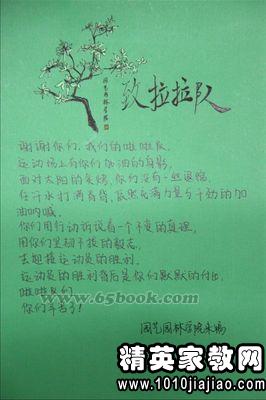 致拉拉队
谢谢你们,我们的啦啦队,
运动场上有你们加油的身影,
面对太阳的炙烤,你们没有一丝退缩
任汗水打满脊背,依然充满力量与干劲的加
油呐喊,
你们用行动诉说着一个不变的真理,
用你们坚韧不拔的毅志,
去迎接运动员的胜利,
运动员的胜利背后是你们默默的付出,
啦啦队们
你们辛苦了!
www.65book.com
园艺园林学院朱
精英家教网
www.1010jiajiao.com